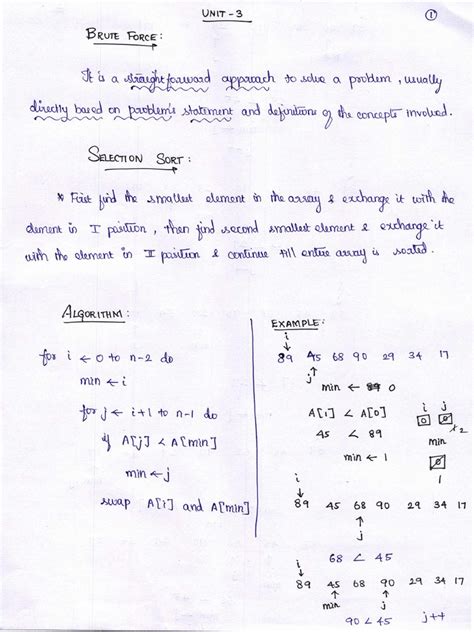 UNIT - 3
1
BRUTE FORCE :
It is a straight forward approach to solve a problem, usually
directly based on problem's statement and definitions of the concepts involved.
SELECTION SORT :
* First find the smallest element in the array & exchange it with the
element in I position, then find second smallest element & exchange it
with the element in II position & continue till entire array is sorted.
ALGORITHM :
for i ← 0 to n-2 do
min ← i
for j ← i+1 to n-1 do
if A[j] < A[min]
min ← j
swap A[i] and A[min]
EXAMPLE :
i
↓
89 45 68 90 29 34 17
↑
j
min ← 0
A[1] < A[0]
45 < 89
min ← 1
i j
0
2
min
1
i
↓
89 45 68 90 29 34 17
↑
j
68 < 45
i
↓
89 45 68 90 29 34 17
↑ ↑
min j
90 < 45 j++